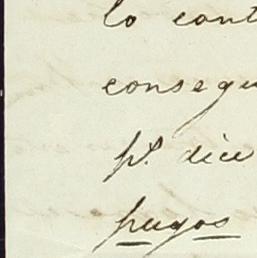 lo cont
consegu
p.ª dice
pagos